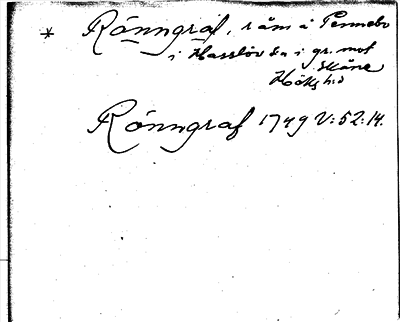 * Rönngraf, råm å Pennebo
i Hasslöv sn i gr. mot
Skåne
Höks hd
Rönngraf 1749 V:52:14.